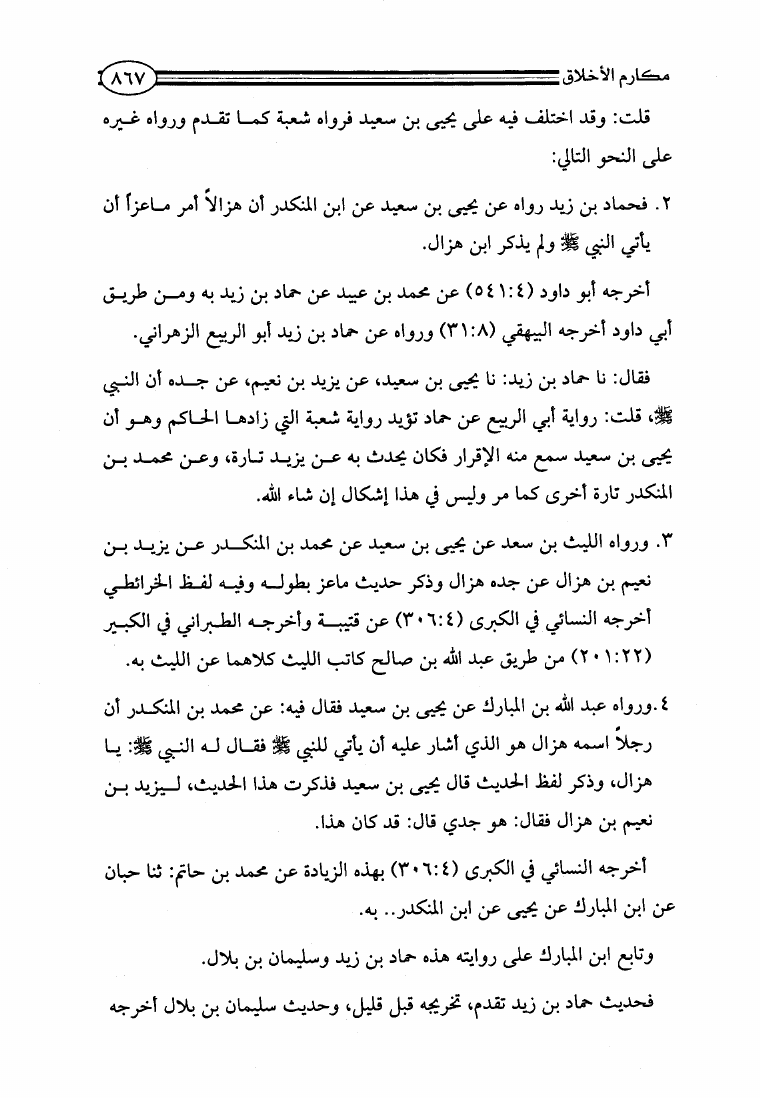 مكارم الأخلاق ٨٦٧
قلت: وقد اختلف فيه على يحيى بن سعيد فرواه شعبة كما تقدم ورواه غيره
على النحو التالي:
٢. فحماد بن زيد رواه عن يحيى بن سعيد عن ابن المنكدر أن هزالاً أمر ماعزاً أن
يأتي النبي ﷺ ولم يذكر ابن هزال.
أخرجه أبو داود (٥٤١:٤) عن محمد بن عبيد عن حماد بن زيد به ومن طريق
أبي داود أخرجه البيهقي (٣١:٨) ورواه عن حماد بن زيد أبو الربيع الزهراني.
فقال: نا حماد بن زيد: نا يحيى بن سعيد، عن يزيد بن نعيم، عن جده أن النبي
ﷺ، قلت: رواية أبي الربيع عن حماد تؤيد رواية شعبة التي زادها الحاكم وهو أن
يحيى بن سعيد سمع منه الإقرار فكان يحدث به عن يزيد تارة، وعن محمد بن
المنكدر تارة أخرى كما مر وليس في هذا إشكال إن شاء الله.
٣. ورواه الليث بن سعد عن يحيى بن سعيد عن محمد بن المنكدر عن يزيد بن
نعيم بن هزال عن جده هزال وذكر حديث ماعز بطوله وفيه لفظ الخرائطي
أخرجه النسائي في الكبرى (٣٠٦:٤) عن قتيبة وأخرجه الطبراني في الكبير
(٢٠١:٢٢) من طريق عبد الله بن صالح كاتب الليث كلاهما عن الليث به.
٤.ورواه عبد الله بن المبارك عن يحيى بن سعيد فقال فيه: عن محمد بن المنكدر أن
رجلاً اسمه هزال هو الذي أشار عليه أن يأتي للنبي ﷺ فقال له النبي ﷺ: يا
هزال، وذكر لفظ الحديث قال يحيى بن سعيد فذكرت هذا الحديث، ليزيد بن
نعيم بن هزال فقال: هو جدي قال: قد كان هذا.
أخرجه النسائي في الكبرى (٣٠٦:٤) بهذه الزيادة عن محمد بن حاتم: ثنا حبان
عن ابن المبارك عن يحيى عن ابن المنكدر.. به.
وتابع ابن المبارك على روايته هذه حماد بن زيد وسليمان بن بلال.
فحديث حماد بن زيد تقدم، تخريجه قبل قليل، وحديث سليمان بن بلال أخرجه